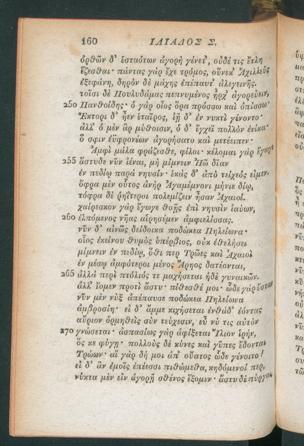 160 ΙΛΙΑΔΟΣ Σ.
ὀρθῶν δ' ἑσταότων ἀγορὴ γένετ', οὐδέ τις ἔτλη
ἕζεσθαι· πάντας γὰρ ἔχε τρόμος, οὕνεκ' Ἀχιλλεὺς
ἐξεφάνη, δηρὸν δὲ μάχης ἐπέπαυτ' ἀλεγεινῆς.
τοῖσι δὲ Πουλυδάμας πεπνυμένος ἦρχ' ἀγορεύειν,
250 Πανθοίδης· ὁ γὰρ οἶος ὅρα πρόσσω καὶ ὀπίσσω·
Ἕκτορι δ' ἦεν ἑταῖρος, ἰῇ δ' ἐν νυκτὶ γένοντο·
ἀλλ' ὁ μὲν ἂρ μύθοισιν, ὁ δ' ἔγχεϊ πολλὸν ἐνίκα·
ὅ σφιν ἐϋφρονέων ἀγορήσατο καὶ μετέειπεν·
Ἀμφὶ μάλα φράζεσθε, φίλοι· κέλομαι γὰρ ἔγωγε
255 ἄστυδε νῦν ἰέναι, μὴ μίμνειν Ἠῶ δῖαν
ἐν πεδίῳ παρὰ νηυσίν· ἑκὰς δ' ἀπὸ τείχεός εἰμεν.
ὄφρα μὲν οὗτος ἀνὴρ Ἀγαμέμνονι μήνιε δίῳ,
τόφρα δὲ ῥηΐτεροι πολεμίζειν ἦσαν Ἀχαιοί.
χαίρεσκον γὰρ ἔγωγε θοῇς ἐπὶ νηυσὶν ἰαύων,
260 ἐλπόμενος νῆας αἱρησέμεν ἀμφιελίσσας.
νῦν δ' αἰνῶς δείδοικα ποδώκεα Πηλείωνα·
οἷος ἐκείνου θυμὸς ὑπέρβιος, οὐκ ἐθελήσει
μίμνειν ἐν πεδίῳ, ὅθι περ Τρῶες καὶ Ἀχαιοὶ
ἐν μέσῳ ἀμφότεροι μένος Ἄρηος δατέονται,
265 ἀλλὰ περὶ πτόλιός τε μαχήσεται ἠδὲ γυναικῶν.
ἀλλ' ἴομεν προτὶ ἄστυ· πίθεσθέ μοι· ὧδε γὰρ ἔσται
νῦν μὲν νὺξ ἀπέπαυσε ποδώκεα Πηλείωνα
ἀμβροσίη· εἰ δ' ἄμμε κιχήσεται ἐνθάδ' ἐόντας
αὔριον ὁρμηθεὶς σὺν τεύχεσιν, εὖ νύ τις αὐτὸν
270 γνώσεται· ἀσπασίως γὰρ ἀφίξεται Ἴλιον ἱρήν,
ὅς κε φύγῃ· πολλοὺς δὲ κύνες καὶ γῦπες ἔδονται
Τρώων· αἲ γὰρ δή μοι ἀπ' οὔατος ὧδε γένοιτο!
εἰ δ' ἂν ἐμοῖς ἐπέεσσι πιθώμεθα, κηδόμενοί περ,
νύκτα μὲν εἰν ἀγορῇ σθένος ἕξομεν· ἄστυ δὲ πύργοι